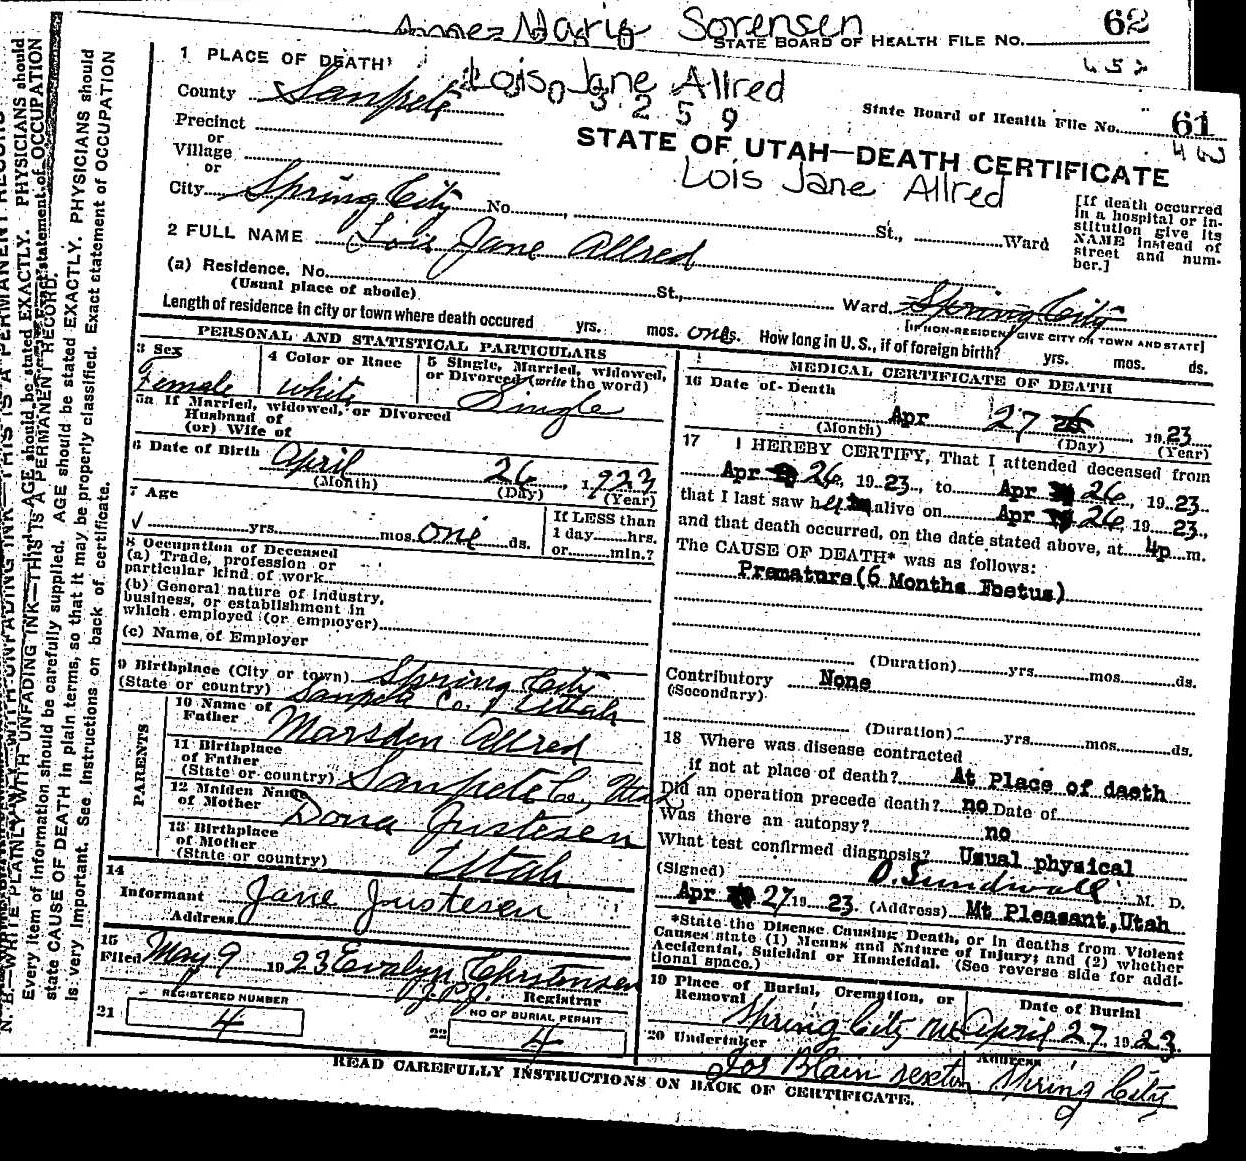 Annez Marie Sorensen
62
STATE BOARD OF HEALTH FILE NO.
1 PLACE OF DEATH
Lois Jane Allred
County Sanpete
0 3 2 5 9
State Board of Health File No. 61
Precinct
or
Village
or
STATE OF UTAH—DEATH CERTIFICATE
Lois Jane Allred
City Spring City No. St., Ward
[If death occurred
in a hospital or in-
stitution give its
NAME instead of
street and num-
ber.]
2 FULL NAME Lois Jane Allred
(a) Residence. No. St., Ward. Spring City
(Usual place of abode)
[If NON-RESIDENT GIVE CITY OR TOWN AND STATE]
Length of residence in city or town where death occured yrs. mos. one ds. How long in U. S., if of foreign birth? yrs. mos. ds.
PERSONAL AND STATISTICAL PARTICULARS
3 Sex
Female
4 Color or Race
White
5 Single, Married, widowed,
or Divorced (write the word)
Single
5a If Married, widowed, or Divorced
Husband of
(or) Wife of
6 Date of Birth April 26, 1923
(Month) (Day) (Year)
7 Age
yrs. mos. one ds.
If LESS than
1 day hrs.
or min.?
8 Occupation of Deceased
(a) Trade, profession or
particular kind of work
(b) General nature of industry,
business, or establishment in
which employed (or employer)
(c) Name of Employer
9 Birthplace (City or town) Spring City
(State or country) Sanpete Co. Utah
PARENTS
10 Name of
Father Marsden Allred
11 Birthplace
of Father
(State or country) Sanpete Co., Utah
12 Maiden Name
of Mother Dona Justesen
13 Birthplace
of Mother
(State or country) Utah
14
Informant Jane Justesen
Address
15
Filed May 9 1923 Evalyn Christensen
Registrar
REGISTERED NUMBER
21 4
NO OF BURIAL PERMIT
22 4
MEDICAL CERTIFICATE OF DEATH
16 Date of Death
Apr 27 1923
(Month) (Day) (Year)
17 I HEREBY CERTIFY, That I attended deceased from
Apr 26, 1923, to Apr 26, 1923
that I last saw her alive on Apr 26, 1923,
and that death occurred, on the date stated above, at 4p m.
The CAUSE OF DEATH* was as follows:
Premature(6 Months Foetus)
(Duration) yrs. mos. ds.
Contributory None
(Secondary)
(Duration) yrs. mos. ds.
18 Where was disease contracted
if not at place of death? At Place of daeth
Did an operation precede death? no Date of
Was there an autopsy? no
What test confirmed diagnosis? Usual physical
(Signed) O. Sundwall M. D.
Apr 27 19 23. (Address) Mt Pleasant,Utah
*State the Disease Causing Death, or in deaths from Violent
Causes state (1) Means and Nature of Injury; and (2) whether
Accidental, Suicidal or Homicidal. (See reverse side for addi-
tional space.)
19 Place of Burial, Cremation, or
Removal
Spring City
Date of Burial
April 27, 1923
20 Undertaker
Jos Blain sexton
Address
Spring City
READ CAREFULLY INSTRUCTIONS ON BACK OF CERTIFICATE.
N. B.—WRITE PLAINLY WITH UNFADING INK—THIS IS A PERMANENT RECORD
Every item of information should be carefully supplied. AGE should be stated EXACTLY. PHYSICIANS should
state CAUSE OF DEATH in plain terms, so that it may be properly classified. Exact statement of OCCUPATION
is very important. See instructions on back of certificate.